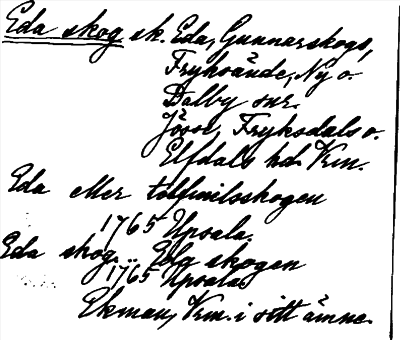 Eda skog sk. Eda, Gunnarskogs,
Fryksände, Ny o.
Dalby snr.
Jösse, Fryksdals o.
Elfdals hd. Vrm.
Eda eller tolfmilsskogen
1765 Upsala.
Eda skog. Eda skogen
1765 Upsala.
Ekman, Vrm. i sitt ämne.